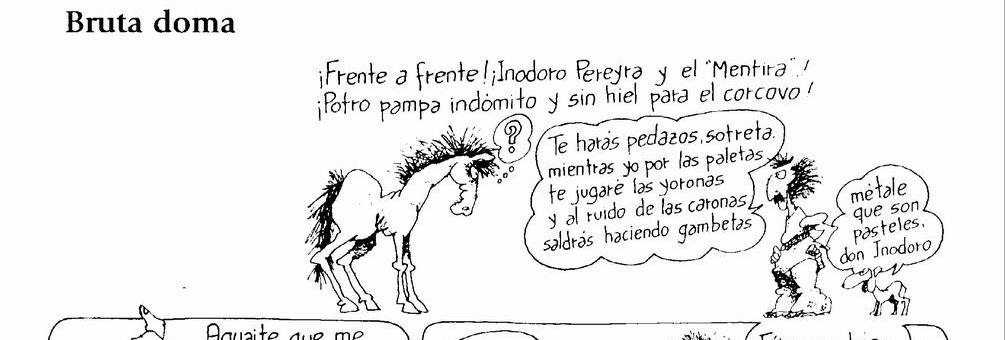 Bruta doma
¡Frente a frente! ¡Inodoro Pereyra y el "Mentira"!
¡Potro pampa indómito y sin hiel para el corcovo!
?
Te harás pedazos, sotreta.
mientras yo por las paletas
te jugaré las yoronas
y al ruido de las caronas
saldrás haciendo gambetas
métale
que son
pasteles,
don Inodoro
Aguaite que me